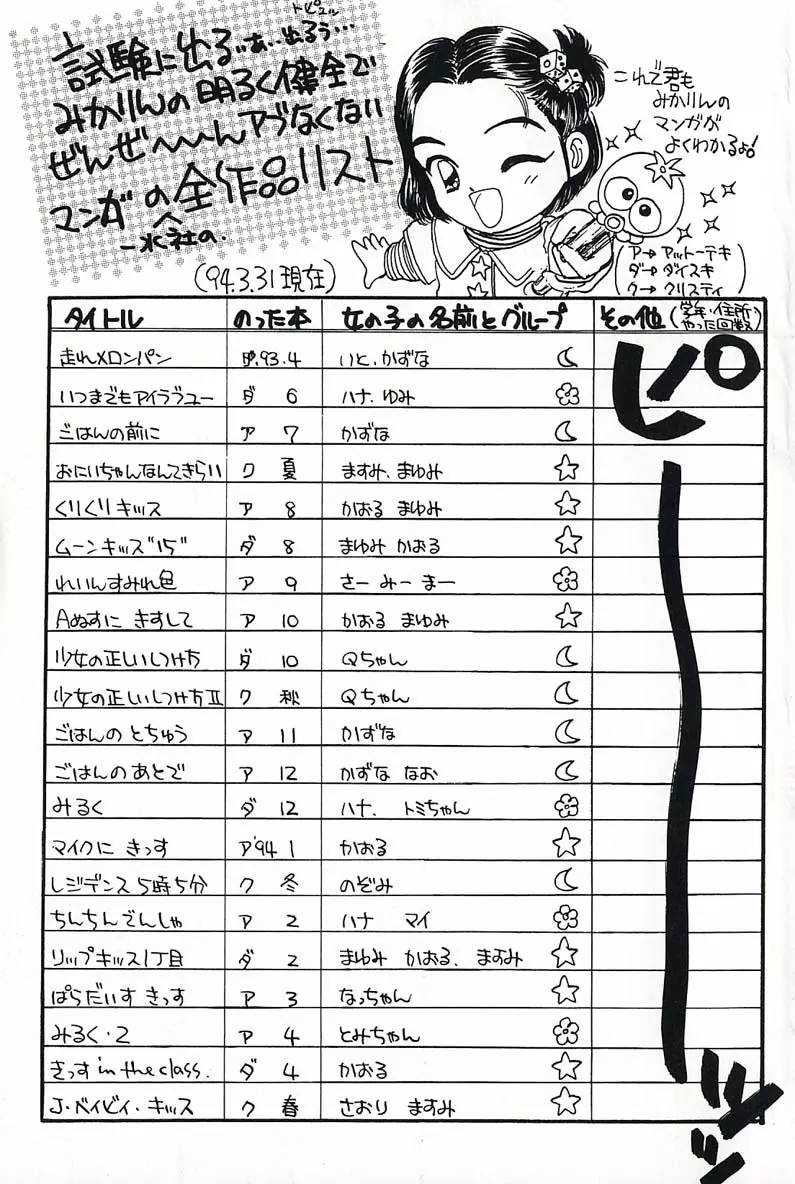 トピュル
試験に出るぅあ…出るぅ…
みかりんの明るく健全で
ぜんぜ〜〜んアブなくない
マンガの全作品リスト
一水社の.
これで君も
みかりんの
マンガが
よくわかるよ!
ア→アットーテキ
ダ→ダイスキ
ク→クリスティ
(94.3.31現在)
タイトル のった本 女の子の名前とグループ その他(学年・住所・やった回数)
走れメロンパン ダ'93.4 いと.かずな
いつまでもアイラブユー ダ 6 ハナ.ゆみ
ごはんの前に ア 7 かずな
おにいちゃんなんてきらい ク 夏 ますみ.まゆみ
くりくりキッス ア 8 かおる まゆみ
ムーンキッス"15" ダ 8 まゆみ かおる
れいんすみれ色 ア 9 さーみーまー
Aぬすに きすして ア 10 かおる まゆみ
少女の正しいしつけ方 ダ 10 Qちゃん
少女の正しいしつけ方Ⅱ ク 秋 Qちゃん
ごはんの とちゅう ア 11 かずな
ごはんのあとで ア 12 かずな なお
みるく ダ 12 ハナ.トミちゃん
マイクに きっす ア'94 1 かおる
レジデンス5時5分 ク 冬 のぞみ
ちんちんでんしゃ ア 2 ハナ マイ
リップキッス1丁目 ダ 2 まゆみ かおる.ますみ
ぱらだいす きっす ア 3 なっちゃん
みるく・2 ア 4 とみちゃん
きっす in the class. ダ 4 かおる
J・ベイビィ・キッス ク 春 さおり ますみ
ピーッッ